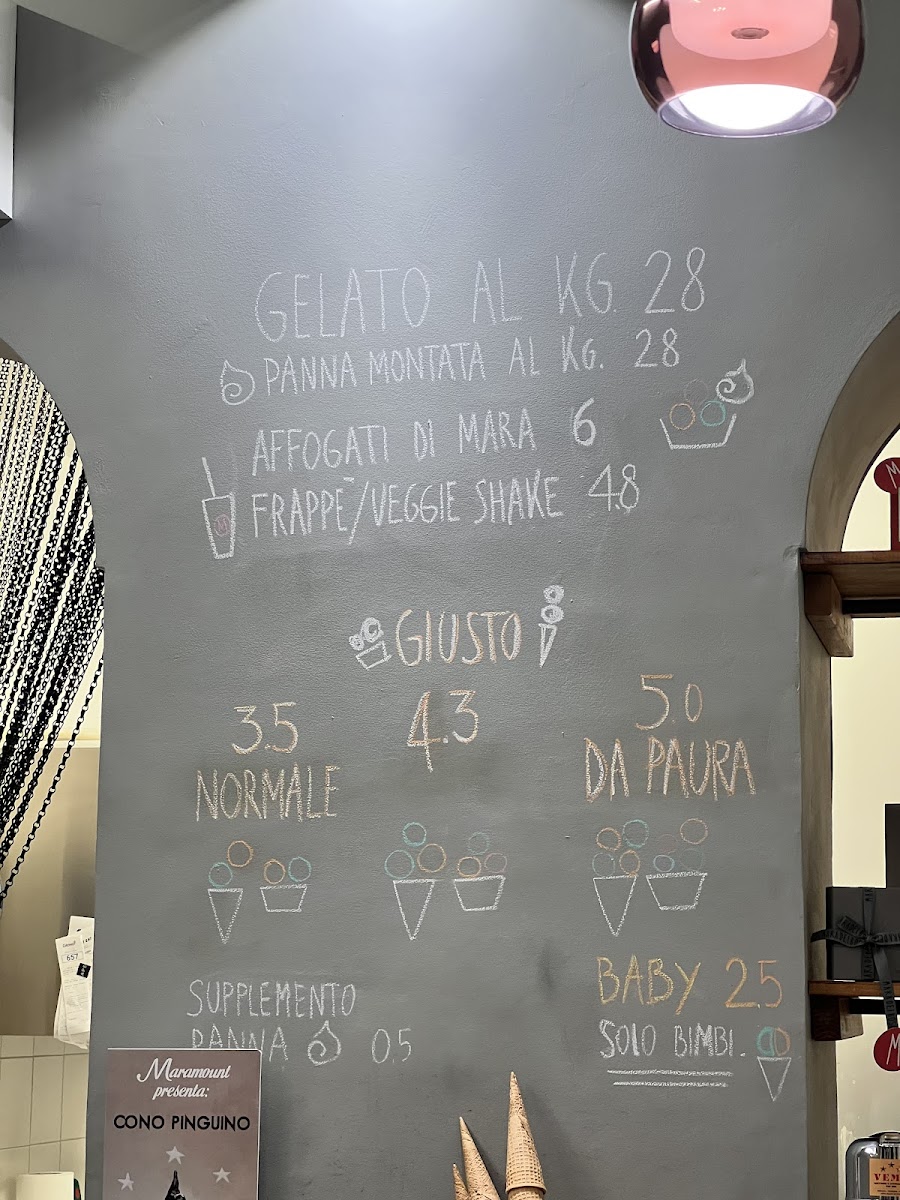 GELATO AL KG. 28
PANNA MONTATA AL KG. 28
AFFOGATI DI MARA 6
FRAPPÈ/VEGGIE SHAKE 4.8
M
GIUSTO
3.5
4.3
5.0
NORMALE
DA PAURA
SUPPLEMENTO
PANNA 0.5
BABY 2.5
SOLO BIMBI.
Maramount
presenta:
CONO PINGUINO
657
M
M